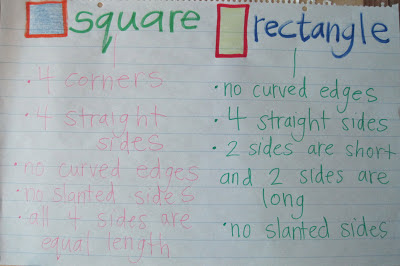 square
• 4 corners
• 4 straight
sides
• no curved edges
• no slanted sides
• all 4 sides are
equal length
rectangle
• no curved edges
• 4 straight sides
• 2 sides are short
and 2 sides are
long
• no slanted sides